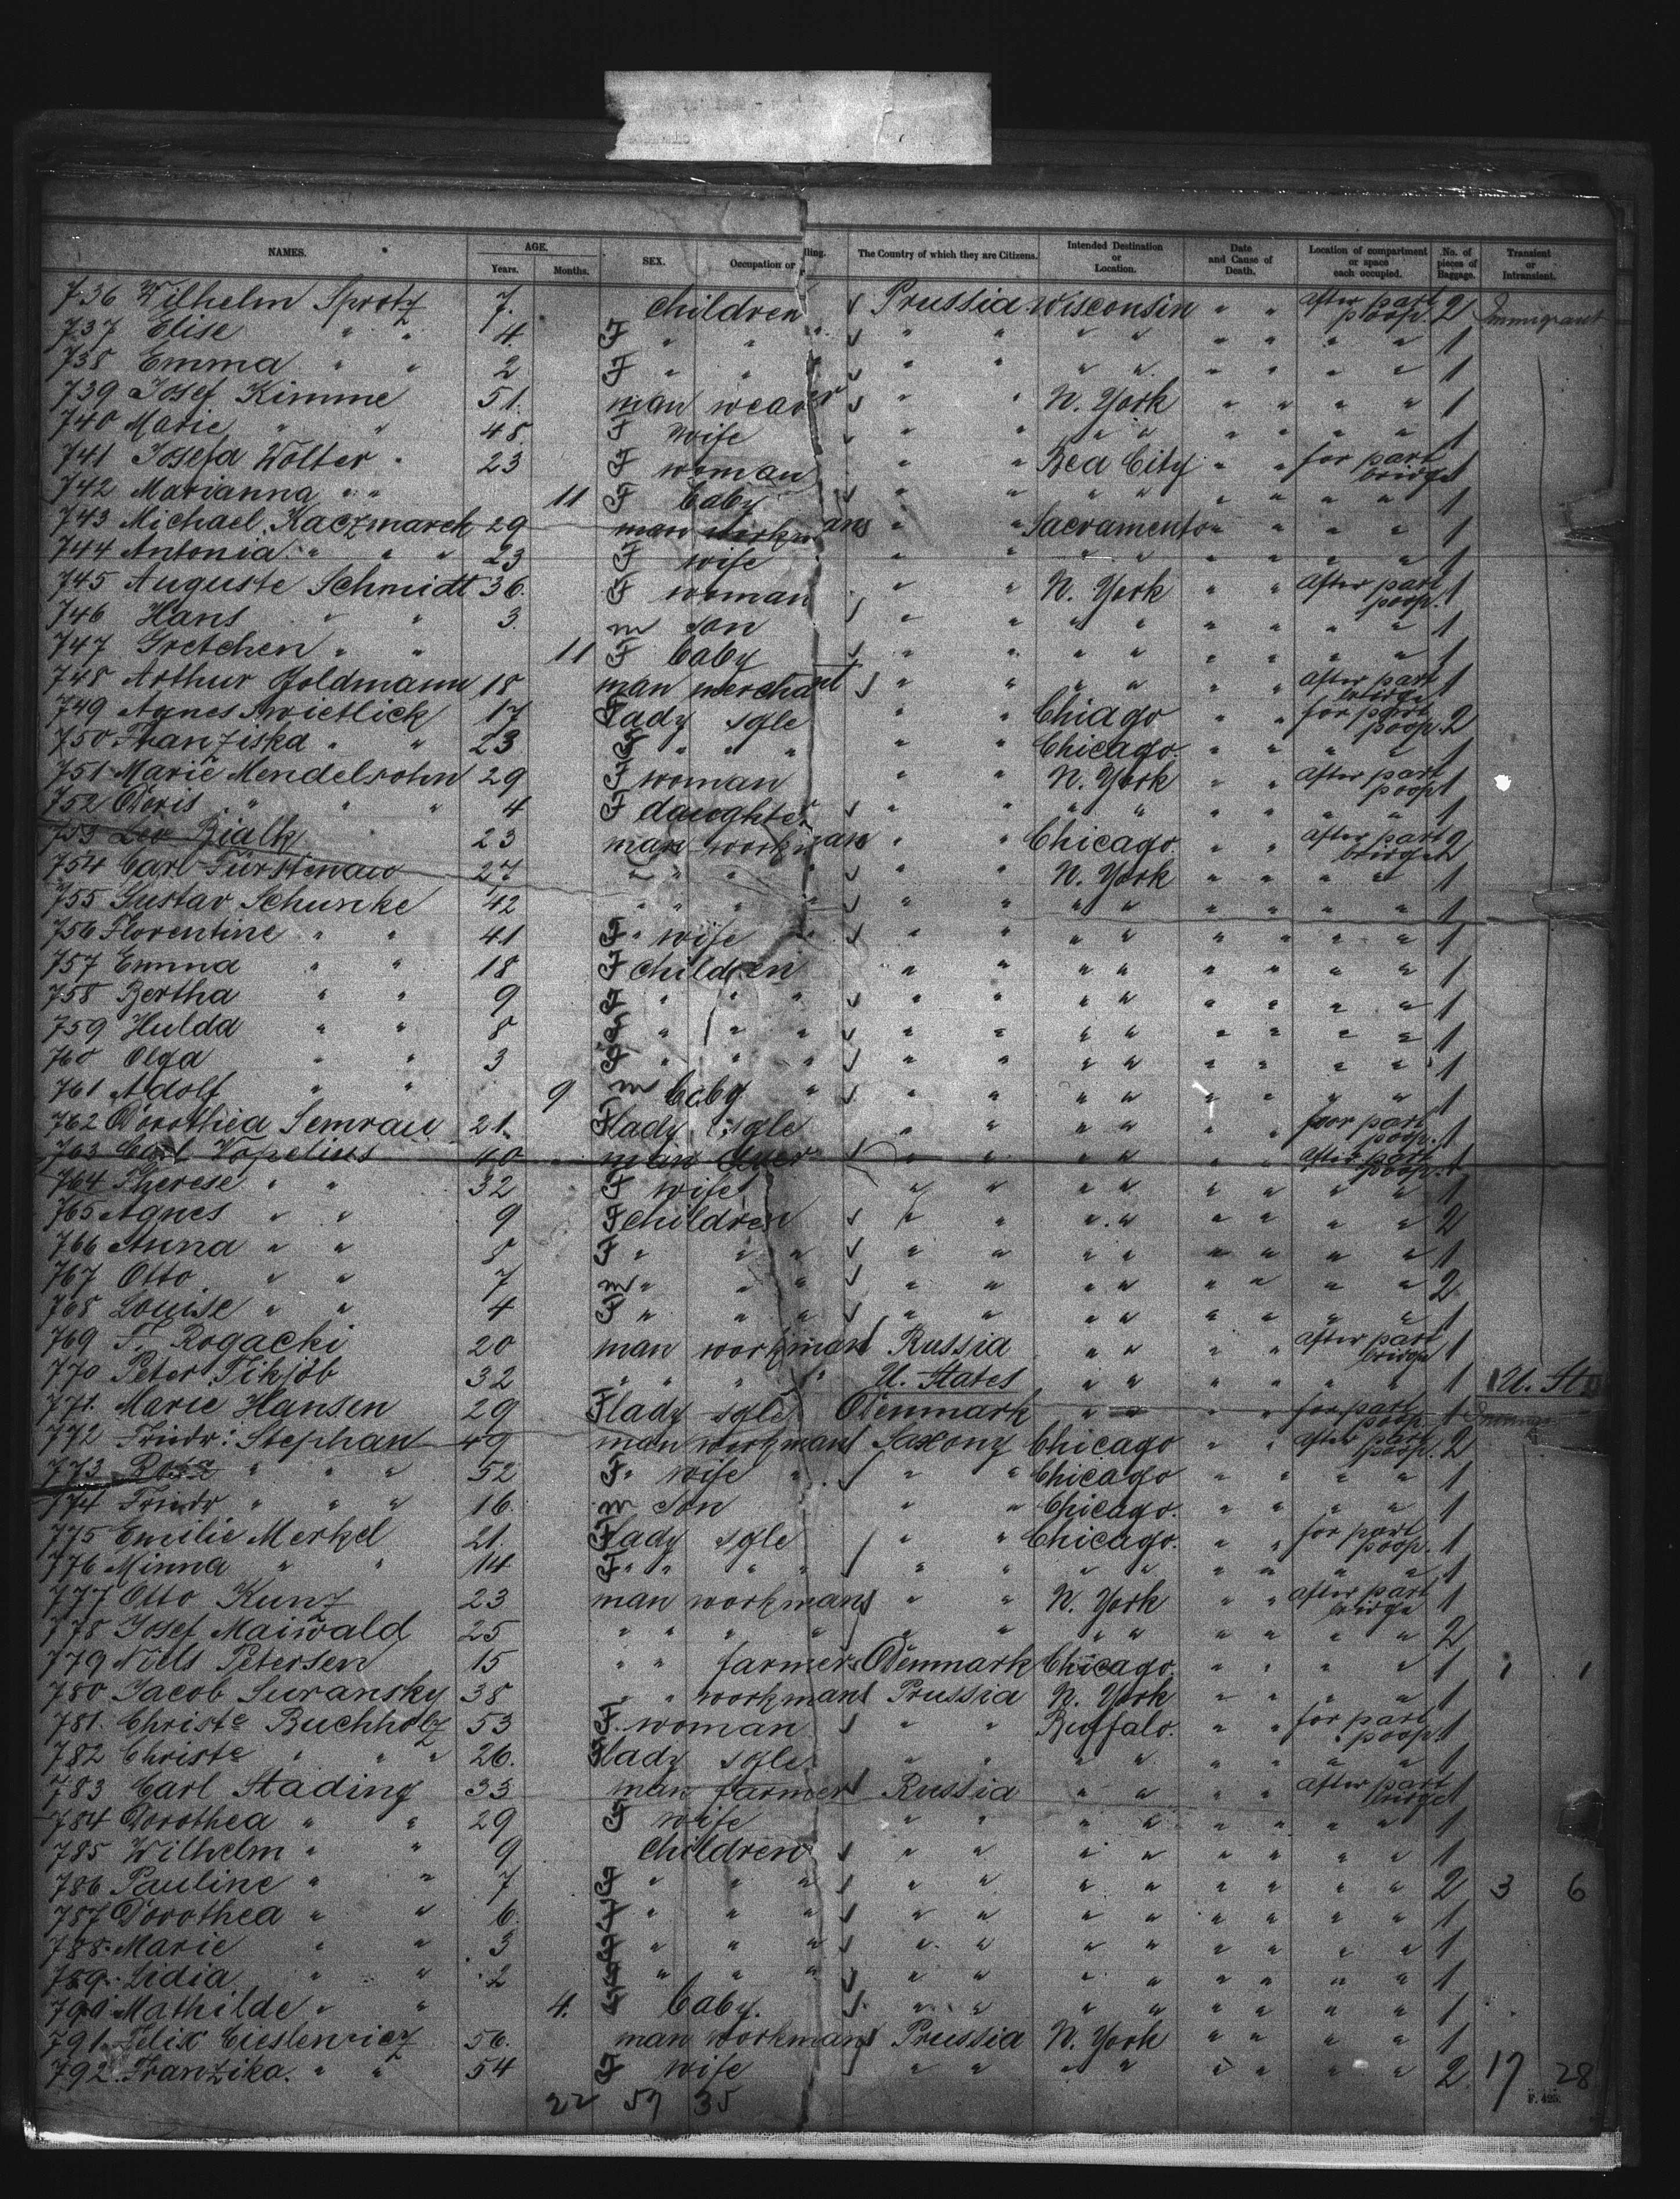 NAMES. AGE. Years. Months. SEX. Occupation or ling. The Country of which they are Citizens. Intended Destination or Location. Date and Cause of Death. Location of compartment or space each occupied. No. of pieces of Baggage. Transient or Intransient.
736 Wilhelm Sprotz 7. children Prussia Wisconsin " " after part poop. 2 Immigrant
737 Elise " " 4. F " " " " " " " " " " " 1
738 Emma " " 2 F " " " " " " " " " " 1
739 Josef Kimme 51. man weaver " " N. York " " " " 1
740 Marie " " 48. F wife " " " " " " " " 1
741 Josefa Wolter 23 F woman " " Bea City " " for part bridge 1
742 Marianna " " 11 F baby " " " " " " " " 1
743 Michael Kaczmarek 29 man workmans " " Sacramento " " " " 1
744 Antonia " " " 23 F wife " " " " " " " " 1
745 Auguste Schmidt 36. F woman " " N. York " " after part poop. 1
746 Hans " " 3. m son " " " " " " " " 1
747 Gretchen " " 11 F baby " " " " " " " " 1
748 Arthur Goldmann 18 man merchant " " " " " " after part bridge 1
749 Agnes Swietlick 17 F lady sgle " " Chiago " " for part poop. 2
750 Franziska " " 23 F " " " " " " Chicago. " " " " 1
751 Marie Mendelsohn 29 F woman " " N. York " " after part poop 1
752 Doris " " " 4 F daughter " " " " " " " " 1
753 Leo Bialk 23 man workman " " Chicago. " " after part bridge 2
754 Carl Fürstenau 27 " " " " " N. York " " " " 1
755 Gustav Schunke 42 " " " " " " " " " " " " 1
756 Florentine " " 41 F " wife " " " " " " " " " 1
757 Emma " " 18 F children " " " " " " " " 1
758 Bertha " " 9 F " " " " " " " " " " " 1
759 Hulda " " 8 F " " " " " " " " " " " 1
760 Olga " " 3 F " " " " " " " " " " " 1
761 Adolf " " 9 m baby " " " " " " " " " 1
762 Dorothea Semrau 21. F lady sgle " " " " " " foor part poop. 1
763 Carl Vopelius 40 man dyer " " " " " " after part poop. 1
764 Therese " " 32 F wife " " " " " " " " 1
765 Agnes " " 9 F children " " " " " " " " 2
766 Anna " " 8 F " " " " " " " " " " " 1
767 Otto " " 7 m " " " " " " " " " " " 2
768 Louise " " 4 F " " " " " " " " " " " 1
769 F. Rogacki 20 man workmans Russia " " " " after part bridge 1
770 Peter Fikjöb 32 " " " " U. States " " " " " " 1 U. St
771. Marie Hansen 29 F lady sgle Denmark " " " " for part poop 1
772 Friedr: Stephan 49 man workmans Saxony Chicago " " after part poop. 2
773 Rosa " " " 52 F " wife " " " Chicago " " " " 1
774 Friedr " " " 16. m son " " Chicago. " " " " 1
775 Emilie Merkel 21. F lady sgle " " Chicago. " " for part poop. 1
776 Minna " " 14 F " " " " " " " " " " " " 1
777 Otto Kunz 23 man workmans " " N. York " " after part bridge 1
778 Josef Maiwald 25 " " " " " " " " " " " " 2
779 Niels Petersen 15 " " farmers Denmark Chicago. " " " " 1 1 1
780 Jacob Suransky 38 " " workmans Prussia N. York " " " " 1
781. Christe Buchholz 53 F woman " " Buffalo. " " for part poop. 1
782 Christe " " " 26. F lady sgle " " " " " " " " 1
783 Carl Stading 33 man farmers Russia " " " " after part bridge 1
784 Dorothea " " 29 F wife " " " " " " " " 1
785 Wilhelm " " 9 children " " " " " " " " 1
786 Pauline " " 7 F " " " " " " " " " " " 2 3 6
787 Dorothea " " 6. F " " " " " " " " " " " 1
788. Marie " " 3 F " " " " " " " " " " " 1
789. Lidia " " 2 F " " " " " " " " " " " 1
790 Mathilde " " 4. F baby. " " " " " " " " 1
791. Felix Cieslewicz 56. man workmans Prussia N. York " " " " 1
792. Franzika. " " 54 F wife " " " " " " " " 2 17 28
22 57 35 F. 425.